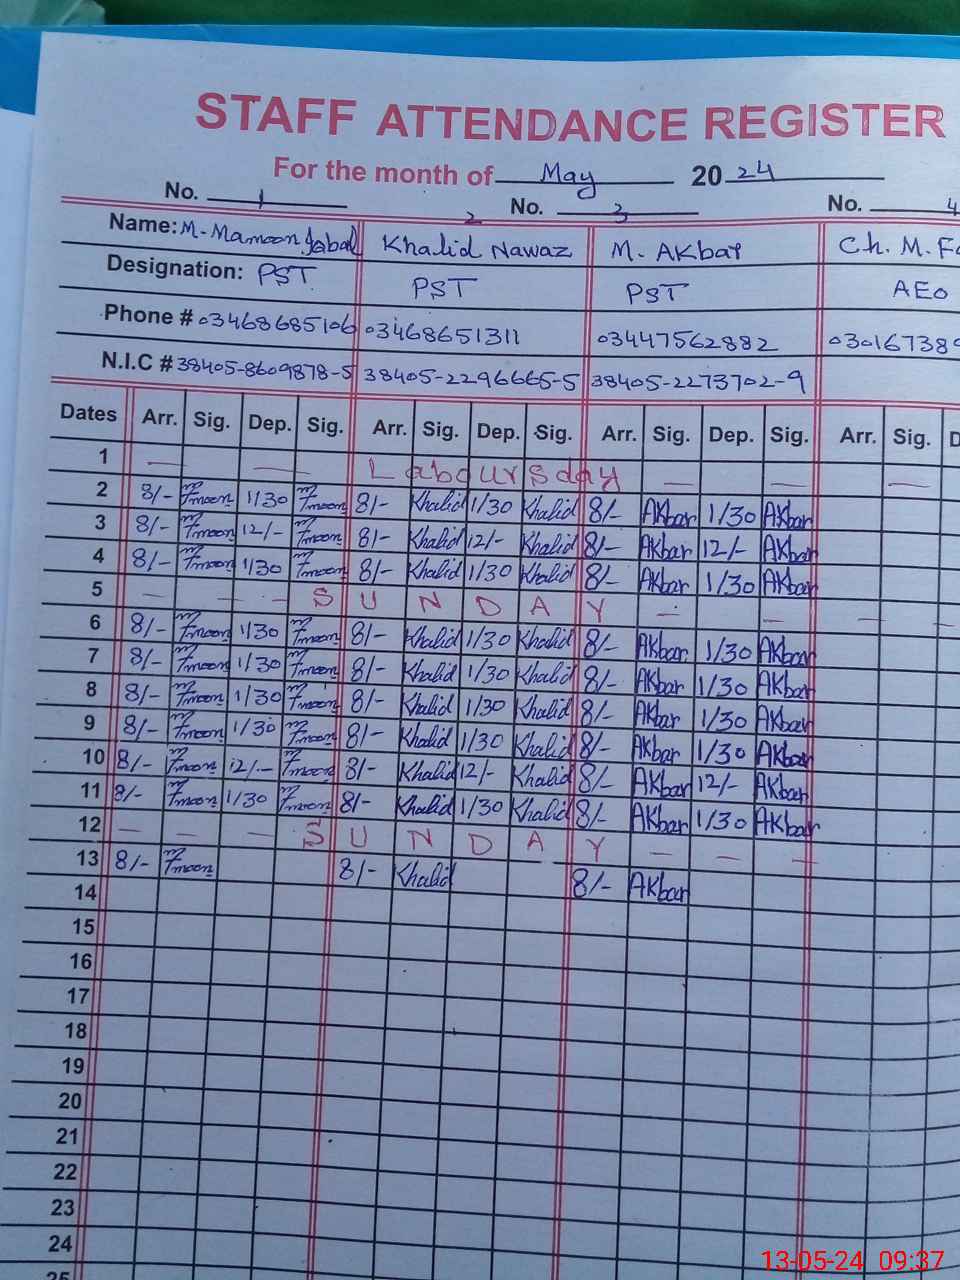 STAFF ATTENDANCE REGISTER
For the month of May 2024
No. 1 2 No. 3 No. 4
Name: M. Mamoon Iqbal Khalid Nawaz M. AKbar Ch. M.
Designation: PST PST PST AEO
Phone # 03468685106 03468651311 03447562882 030167389
N.I.C # 38405-8609878-5 38405-2296665-5 38405-2273702-9
Dates Arr. Sig. Dep. Sig. Arr. Sig. Dep. Sig. Arr. Sig. Dep. Sig. Arr. Sig. D
1 — — Laboursday — — —
2 8/- moon 1/30 moon 8/- Khalid 1/30 Khalid 8/- AKbar 1/30 AKbar
3 8/- moon 12/- moon 8/- Khalid 12/- Khalid 8/- AKbar 12/- AKbar
4 8/- moon 1/30 moon 8/- Khalid 1/30 Khalid 8/- AKbar 1/30 AKbar
5 — — — SUNDAY — — — —
6 8/- moon 1/30 moon 8/- Khalid 1/30 Khalid 8/- AKbar 1/30 AKbar
7 8/- moon 1/30 moon 8/- Khalid 1/30 Khalid 8/- AKbar 1/30 AKbar
8 8/- moon 1/30 moon 8/- Khalid 1/30 Khalid 8/- AKbar 1/30 AKbar
9 8/- moon 1/30 moon 8/- Khalid 1/30 Khalid 8/- AKbar 1/30 AKbar
10 8/- moon 12/- moon 8/- Khalid 12/- Khalid 8/- AKbar 12/- AKbar
11 8/- moon 1/30 moon 8/- Khalid 1/30 Khalid 8/- AKbar 1/30 AKbar
12 — — — SUNDAY — — —
13 8/- moon 8/- Khalid 8/- AKbar
14
15
16
17
18
19
20
21
22
23
24
25
13-05-24 09:37